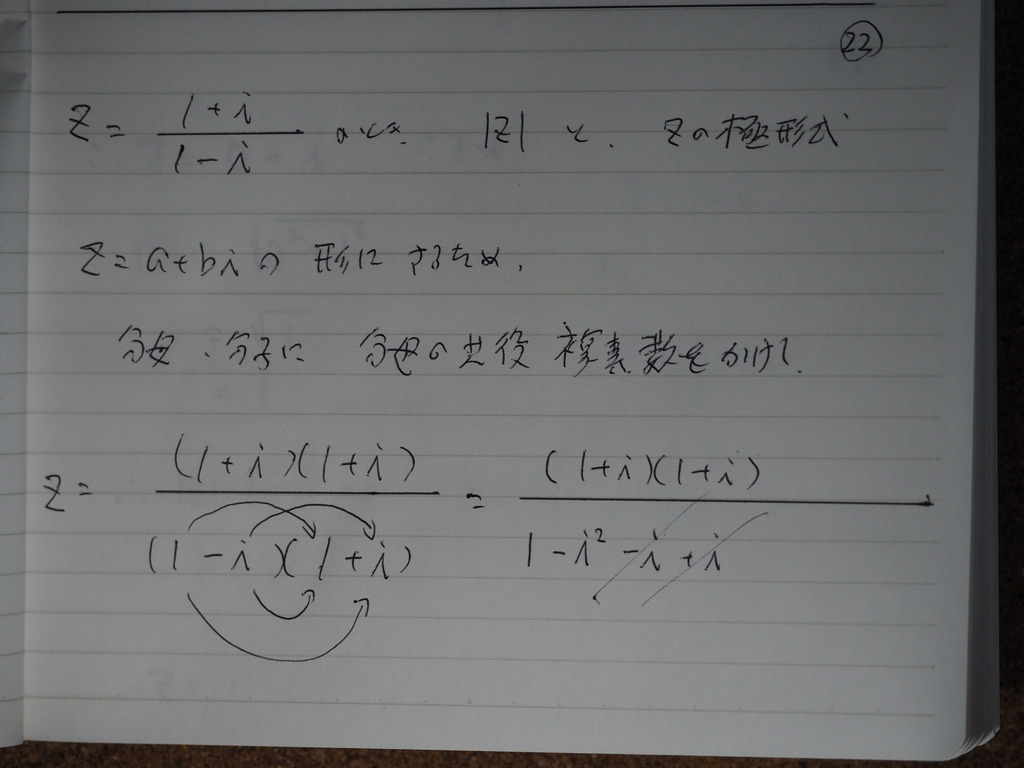 22
z = (1+i)/(1-i) のとき |z| と、zの極形式
z = a+bi の 形に するため、
分母、分子に 分母の共役 複素数をかけて、
z = (1+i)(1+i)/(1-i)(1+i) = (1+i)(1+i)/1-i²-i+i